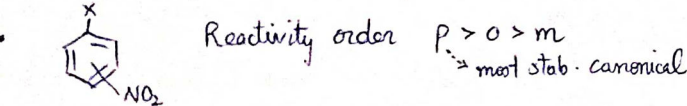 X
Reactivity order p > o > m
→ most stab. canonical
NO₂